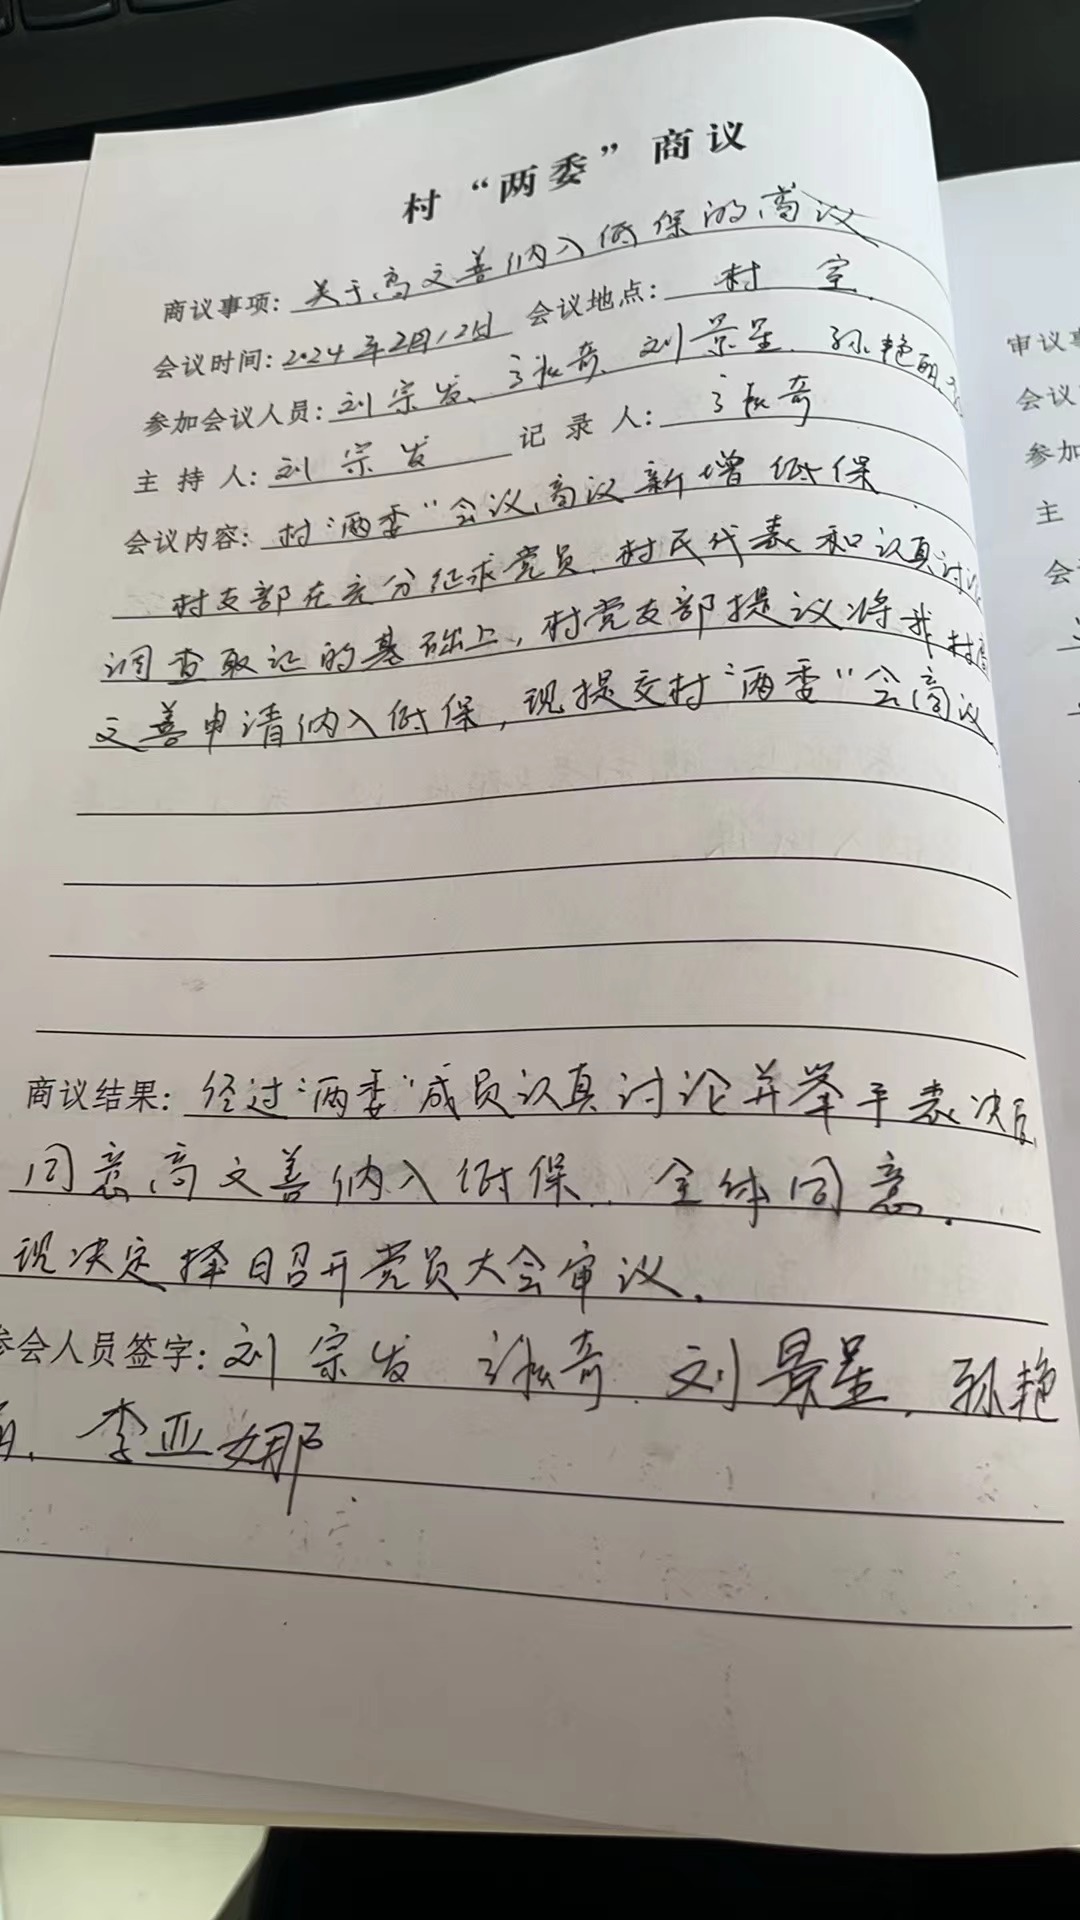 村“两委”商议
商议事项：关于高文善纳入低保的商议
会议时间：2024年2月12日 会议地点：村室
参加会议人员：刘宗发、张奇、刘景星、孙艳丽、
主持人：刘宗发 记录人：张奇
会议内容：村“两委”会议，商议新增低保
村支部在充分征求党员、村民代表和认真讨论
调查取证的基础上，村党支部提议将我村高
文善申请纳入低保，现提交村“两委”会商议
商议结果：经过“两委”成员认真讨论并举手表决后，
同意高文善纳入低保，全体同意。
现决定择日召开党员大会审议。
参会人员签字：刘宗发 张奇 刘景星、孙艳
丽、李亚娜
审议事
会议
参加
主
会议